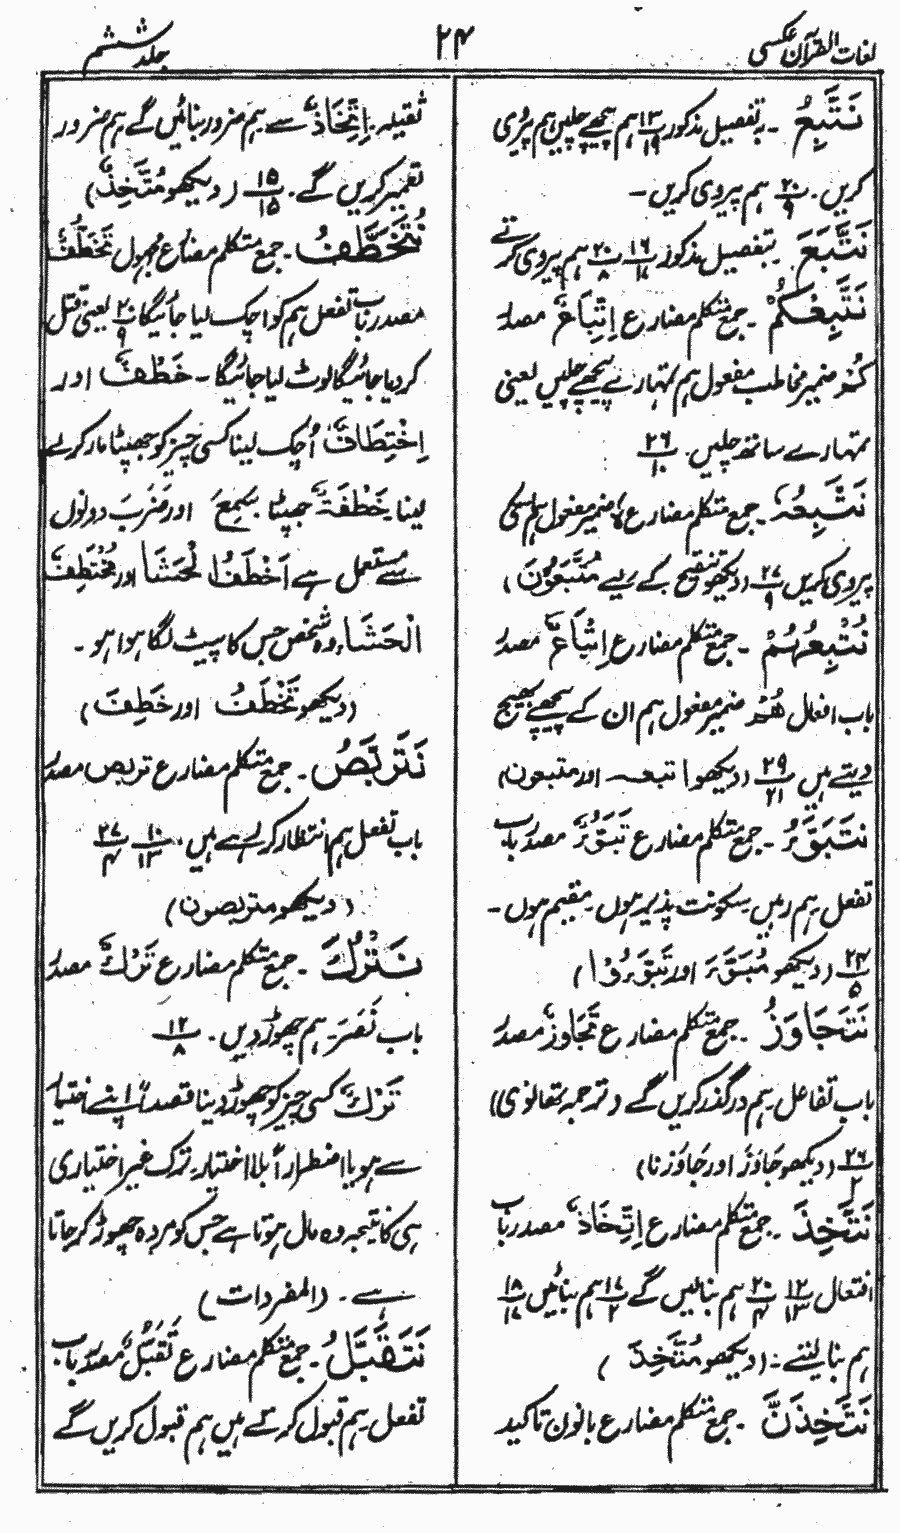 لغات القرآن عکسی
۲۴
جلد ششم
نَتَّبِعُ ۔ بہ تفصیل مذکور ۱۳/۱۹ ہم پیچھے چلیں ہم پیروی
کریں ۔ ۲۰/۹ ہم پیروی کریں ۔
نَتَّبِعَ ۔ بتفصیل مذکور ۱۶/۱۸ ۲۰/۸ ہم پیروی کرتے
نَتَّبِعْكُمْ ۔ جمع متکلم مضارع اِتِّبَاعٌ مصدر
كُمْ ضمیر مخاطب مفعول ہم تمہارے پیچھے چلیں یعنی
تمہارے ساتھ چلیں ۔ ۲۶/۱۰
نَتَّبِعْهُ ۔ جمع متکلم مضارع ہٗ ضمیر مفعول ہم اسکی
پیروی کریں ۲۷/۹ (دیکھو تنقیح کے لیے مُتَّبَعُوْنَ)
نُتْبِعُهُمْ ۔ جمع متکلم مضارع اِتْبَاعٌ مصدر
باب افعال هُمْ ضمیر مفعول ہم ان کے پیچھے بھیج
دیتے ہیں ۲۹/۲۱ (دیکھو ا تبعہ اور متبعون)
نَتَبَوَّءُ ۔ جمع متکلم مضارع تَبَوُّءٌ مصدر باب
تفعل ہم رہیں سکونت پذیر ہوں مقیم ہوں ۔
۲۴/۵ (دیکھو مُبَوَّءَ اور تَبَوَّءُوْ ا)
نَتَجَاوَزُ ۔ جمع متکلم مضارع تَجَاوُزٌ مصدر
باب تفاعل ہم درگذر کریں گے (ترجمہ تھانوی)
۲۶/۲ (دیکھو جَاوَزَ اور جَاوَزنا)
نَتَّخِذَ ۔ جمع متکلم مضارع اِتِّخَاذٌ مصدر باب
افتعال ۱۲/۱۳ ۲۰/۴ ہم بنالیں گے ۱۷/۲ ہم بنائیں ۱۸/۱۷
ہم بنا لیتے ۔ (دیکھو مُتَّخِذَ )
نَتَّخِذَنَّ ۔ جمع متکلم مضارع بانون تاکید
ثقیلہ ۔ اِتِّخَاذٌ سے ہم ضرور بنائیں گے ہم ضرور
تعمیر کریں گے ۔ ۱۵/۱۵ ( دیکھو مُتَّخِذٌ)
نُتَخَطَّفُ ۔ جمع متکلم مضارع مجہول تَخَطُّفٌ
مصدر باب تفعل ہم کو اچک لیا جائیگا ۲۰/۹ یعنی قتل
کر دیا جائیگا لوٹ لیا جائیگا ۔ خَطْفٌ اور
اِخْتِطَافٌ اُچک لینا کسی چیز کو جھپٹا مار کر لے
لینا ۔ خَطْفَةٌ جھپٹا سَمِعَ اور ضَرَبَ دونوں
سے مستعمل ہے اَخْطَفُ الْحَشَا اور مُخْتَطِفُ
الْحَشَاء وہ شخص جس کا پیٹ لگا ہوا ہو ۔
(دیکھو تَخْطَفُ اور خَطِفَ )
نَتَرَبَّصُ ۔ جمع متکلم مضارع تربص مصدر
باب تفعل ہم انتظار کر رہے ہیں ۔ ۱۰/۱۳ ۲۷/۴
(دیکھو متربصون)
نَتْرُكَ ۔ جمع متکلم مضارع تَرْكٌ مصدر
باب نَصَرَ ۔ ہم چھوڑ دیں ۔ ۱۲/۸
تَرْكٌ کسی چیز کو چھوڑ دینا قصداً اپنے اختیار
سے ہو یا اضطراراً بلا اختیار ۔ ترک غیر اختیاری
ہی کا نتیجہ وہ مال ہوتا ہے جس کو مردہ چھوڑ کر جاتا
ہے ۔ (المفردات )
نَتَقَبَّلُ ۔ جمع متکلم مضارع تَقَبُّلٌ مصدر باب
تفعل ہم قبول کرتے ہیں ہم قبول کریں گے